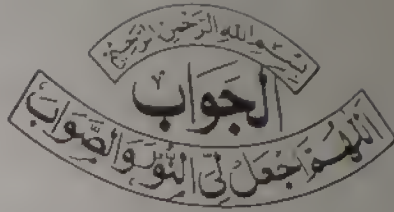 بِسْمِ اللهِ الرَّحْمٰنِ الرَّحِيْمِ
الجَوَابْ
اَللّٰهُمَّ اجْعَلْ لِّىَ النُّوْرَ وَالصَّوَابَ